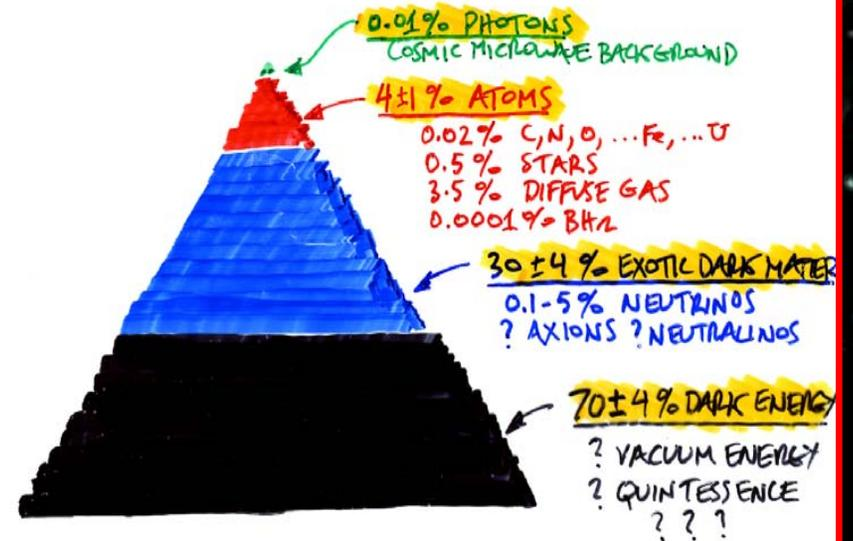 0.01% PHOTONS
COSMIC MICROWAVE BACKGROUND
4±1% ATOMS
0.02% C, N, O, ...Fe, ...U
0.5% STARS
3.5% DIFFUSE GAS
0.0001% BHs
30±4% EXOTIC DARK MATTER
0.1-5% NEUTRINOS
? AXIONS ? NEUTRALINOS
70±4% DARK ENERGY
? VACUUM ENERGY
? QUINTESSENCE
? ? ?